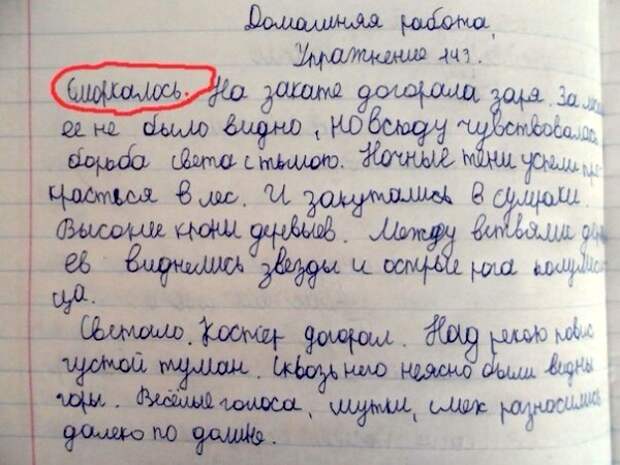 Домашняя работа,
Упражнение 143.
Сморкалось. На закате догорала заря. За
ее не было видно, но всюду чувствовалась
борьба света с тьмою. Ночные тени успели про-
красться в лес. И закутались в сумраки.
Высокие кроны деревьев. Между ветвями дер
ев виднелись звезды и острые рога полумеся
ца.
Светало. Костер догорал. Над рекою повис
густой туман. Сквозь него неясно были видны
горы. Весёлые голоса, шутки, смех разносились
далеко по долине.